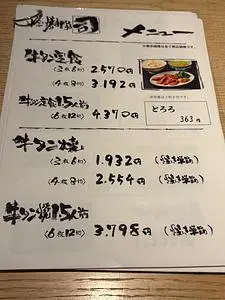 司
メニュー
牛タン定食
(3枚6切) 2.570円
(4枚8切) 3.192円
牛タン定食1.5人前
(6枚12切) 4.370円
とろろ
363円
牛タン焼
(3枚6切) 1.932円 (焼き単品)
(4枚8切) 2.554円 (焼き単品)
牛タン焼1.5人前
(6枚12切) 3.798円 (焼き単品)